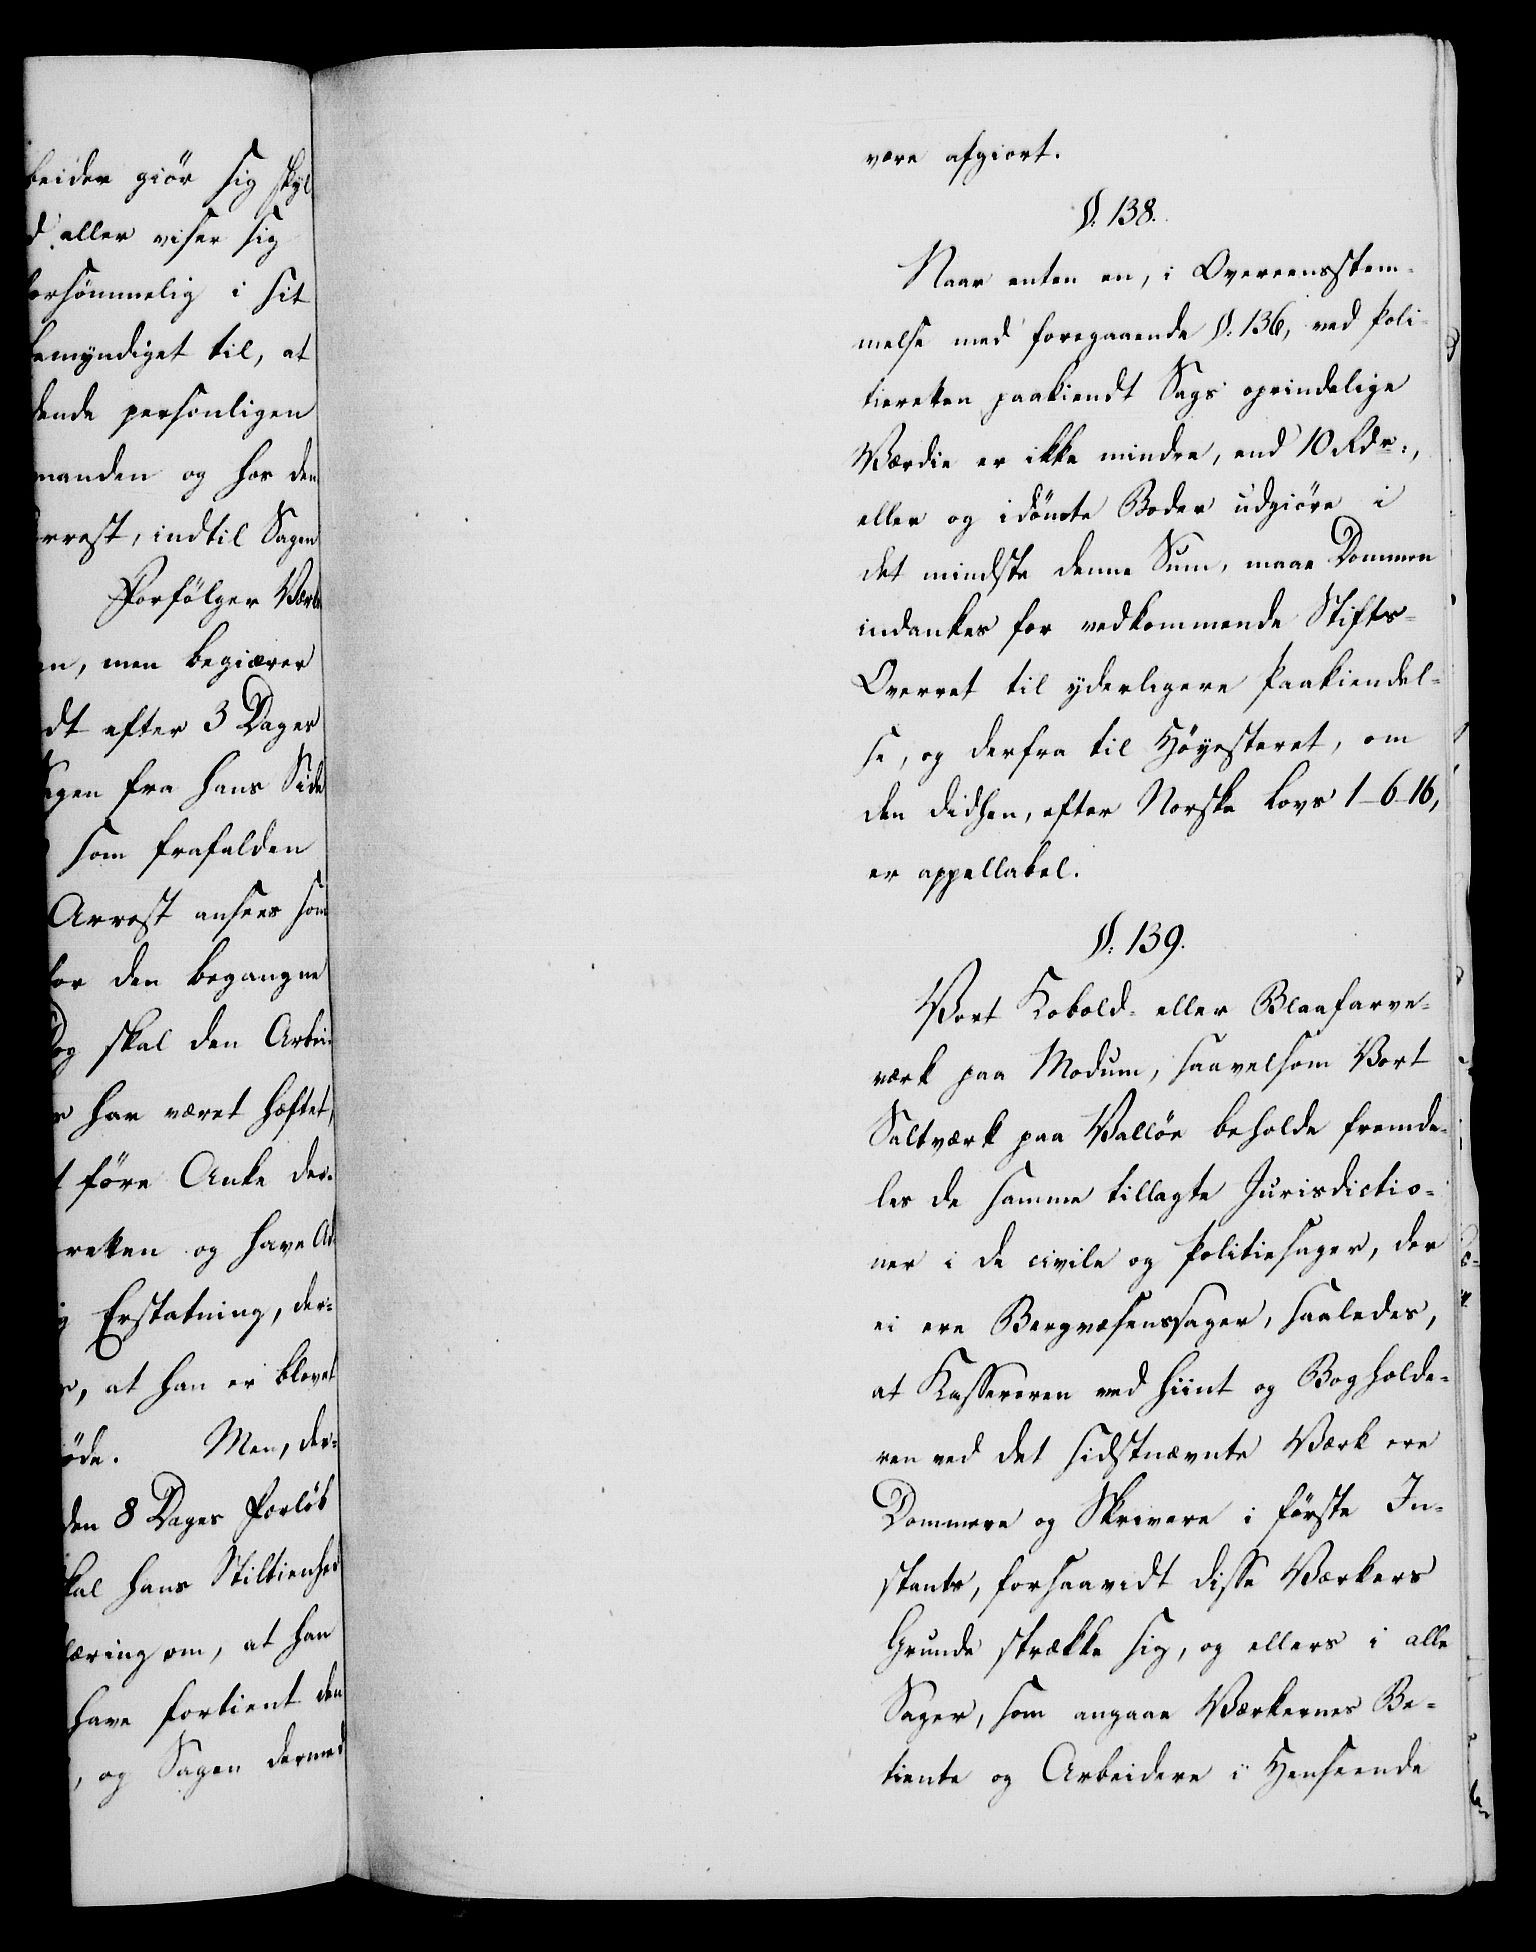 beider giör sig skyl
d eller viser sig
forsömmelig i sit
bemyndiget til, at
dende personligen
manden og hos den
rrest, indtil Sagen
Forfölger Værk
en, men begiærer
dt efter 3 Dages
agen fra hans Side
som frafalden
Arrest ansees som
for den begangne
Dog skal den Arbei-
s har været hæftet,
t före Anke der-
reten og have Ad-
g Erstatning, der-
s, at han er blevet
öde. Men, der-
den 8 Dages Forlöb
skal hans Stiltienhed
læring om, at han
have fortient den
, og Sagen dermed
være afgiort.
§. 138.
Naar enten en, i Overeensstem-
melse med foregaaende §. 136, ved Poli-
tieretten paakiendt Sags oprindelige
Værdie er ikke mindre, end 10 Rdr.,
eller og idömte Bøder udgiöre i
det mindste denne Sum, maae Dommen
indankes for vedkommende Stifts-
Overret til yderligere Paakiendel-
se, og derfra til Höyesteret, om
den didhen, efter Norske Lovs 1-6-16,
er appellabel.
§. 139.
Vort Kobold- eller Blaafarve-
værk paa Modum, saavelsom Vort
Saltværk paa Vallöe beholde fremde-
les de samme tillagte Jurisdictio-
ner i de civile og Politiesager, der
ei ere Bergvæsenssager, saaledes,
at Kassereren ved hiint og Bogholde-
ren ved det sidstnævnte Værk ere
Dommere og Skrivere i förste In-
stants, forsaavidt disse Værkers
Grunde strække sig, og ellers i alle
Sager, som angaae Værkernes Be-
tiente og Arbeidere i Henseende